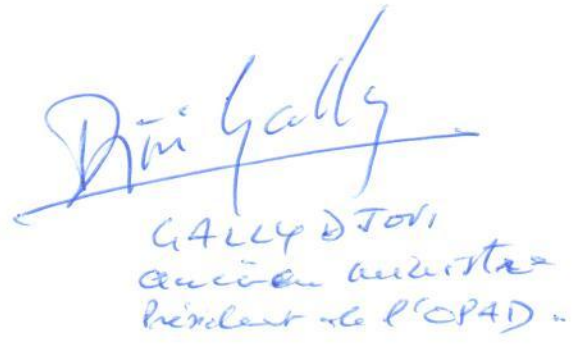 Djovi Gally
GALLY DJOVI
ancien ministre
Président de l'OPAD.